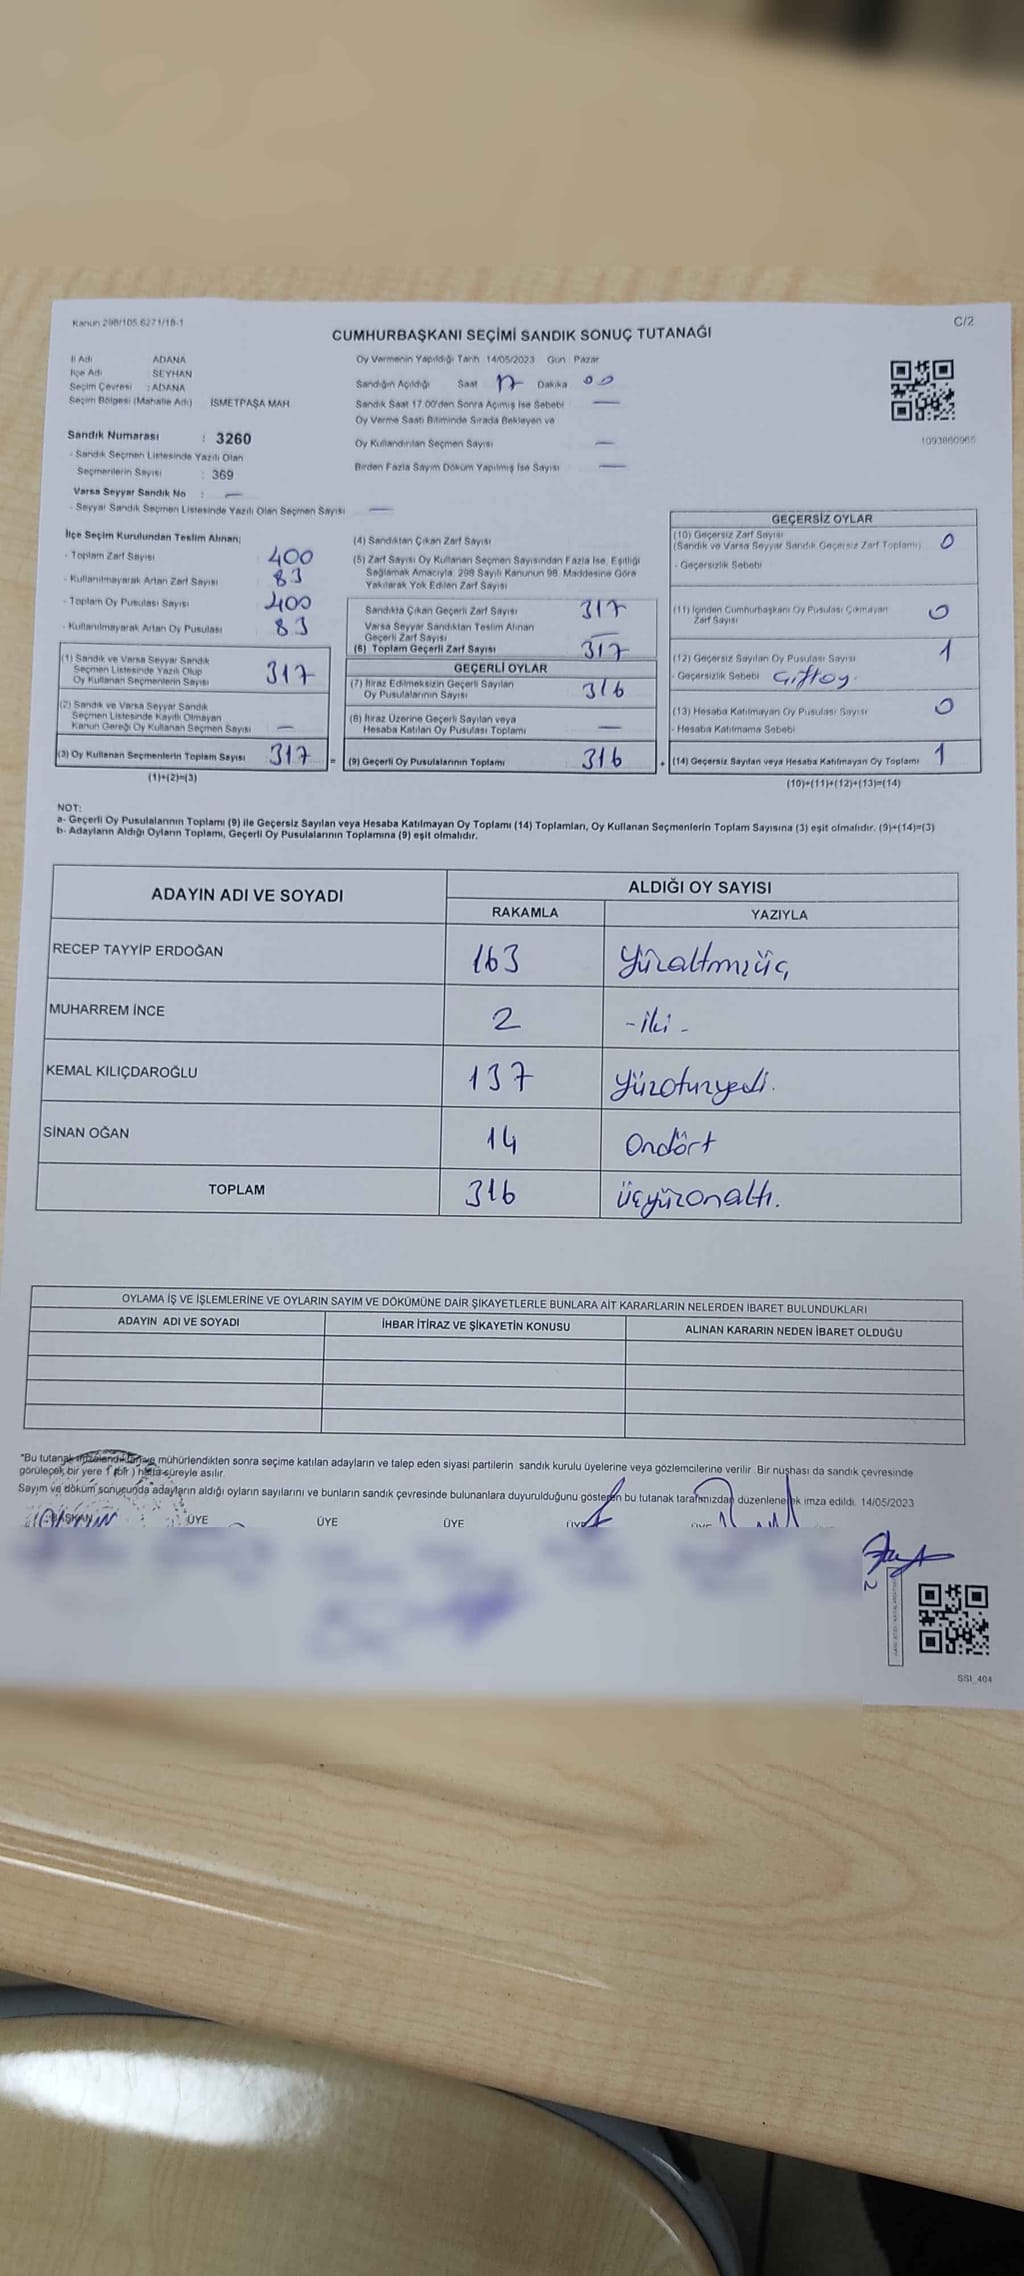 Kanun 298/105 6271/18-1
C/2
CUMHURBAŞKANI SEÇİMİ SANDIK SONUÇ TUTANAĞI
İl Adı ADANA
İlçe Adı SEYHAN
Seçim Çevresi : ADANA
Seçim Bölgesi (Mahalle Adı) İSMETPAŞA MAH.
Oy Vermenin Yapıldığı Tarih 14/05/2023 Gün Pazar
Sandığın Açıldığı Saat 17 Dakika 00
Sandık Saat 17.00'den Sonra Açılmış İse Sebebi —
Oy Verme Saati Bitiminde Sırada Bekleyen ve
Oy Kullandırılan Seçmen Sayısı —
Birden Fazla Sayım Döküm Yapılmış İse Sayısı —
1093860965
Sandık Numarası : 3260
- Sandık Seçmen Listesinde Yazılı Olan
Seçmenlerin Sayısı : 369
Varsa Seyyar Sandık No : —
- Seyyar Sandık Seçmen Listesinde Yazılı Olan Seçmen Sayısı —
İlçe Seçim Kurulundan Teslim Alınan;
- Toplam Zarf Sayısı 400
- Kullanılmayarak Artan Zarf Sayısı 83
- Toplam Oy Pusulası Sayısı 400
- Kullanılmayarak Artan Oy Pusulası 83
(1) Sandık ve Varsa Seyyar Sandık
Seçmen Listesinde Yazılı Olup
Oy Kullanan Seçmenlerin Sayısı 317
(2) Sandık ve Varsa Seyyar Sandık
Seçmen Listesinde Kayıtlı Olmayan
Kanun Gereği Oy Kullanan Seçmen Sayısı —
(3) Oy Kullanan Seçmenlerin Toplam Sayısı 317 =
(1)+(2)=(3)
(4) Sandıktan Çıkan Zarf Sayısı
(5) Zarf Sayısı Oy Kullanan Seçmen Sayısından Fazla İse, Eşitliği
Sağlamak Amacıyla, 298 Sayılı Kanunun 98. Maddesine Göre
Yakılarak Yok Edilen Zarf Sayısı
Sandıkta Çıkan Geçerli Zarf Sayısı 317
Varsa Seyyar Sandıktan Teslim Alınan
Geçerli Zarf Sayısı —
(6) Toplam Geçerli Zarf Sayısı 317
GEÇERLİ OYLAR
(7) İtiraz Edilmeksizin Geçerli Sayılan
Oy Pusulalarının Sayısı 316
(8) İtiraz Üzerine Geçerli Sayılan veya
Hesaba Katılan Oy Pusulası Toplamı —
(9) Geçerli Oy Pusulalarının Toplamı 316 +
GEÇERSİZ OYLAR
(10) Geçersiz Zarf Sayısı
(Sandık ve Varsa Seyyar Sandık Geçersiz Zarf Toplamı) 0
- Geçersizlik Sebebi
(11) İçinden Cumhurbaşkanı Oy Pusulası Çıkmayan
Zarf Sayısı 0
(12) Geçersiz Sayılan Oy Pusulası Sayısı 1
- Geçersizlik Sebebi Çiftoy.
(13) Hesaba Katılmayan Oy Pusulası Sayısı 0
- Hesaba Katılmama Sebebi
(14) Geçersiz Sayılan veya Hesaba Katılmayan Oy Toplamı 1
(10)+(11)+(12)+(13)=(14)
NOT:
a- Geçerli Oy Pusulalarının Toplamı (9) ile Geçersiz Sayılan veya Hesaba Katılmayan Oy Toplamı (14) Toplamları, Oy Kullanan Seçmenlerin Toplam Sayısına (3) eşit olmalıdır. (9)+(14)=(3)
b- Adayların Aldığı Oyların Toplamı, Geçerli Oy Pusulalarının Toplamına (9) eşit olmalıdır.
ADAYIN ADI VE SOYADI
ALDIĞI OY SAYISI
RAKAMLA YAZIYLA
RECEP TAYYİP ERDOĞAN 163 Yüzaltmışüç
MUHARREM İNCE 2 -iki-
KEMAL KILIÇDAROĞLU 137 Yüzotuzyedi.
SİNAN OĞAN 14 Ondört
TOPLAM 316 üçyüzonaltı.
OYLAMA İŞ VE İŞLEMLERİNE VE OYLARIN SAYIM VE DÖKÜMÜNE DAİR ŞİKAYETLERLE BUNLARA AİT KARARLARIN NELERDEN İBARET BULUNDUKLARI
ADAYIN ADI VE SOYADI İHBAR İTİRAZ VE ŞİKAYETİN KONUSU ALINAN KARARIN NEDEN İBARET OLDUĞU
*Bu tutanak imzalandıktan ve mühürlendikten sonra seçime katılan adayların ve talep eden siyasi partilerin sandık kurulu üyelerine veya gözlemcilerine verilir. Bir nüshası da sandık çevresinde
görülecek bir yere 1 (bir) hafta süreyle asılır.
Sayım ve döküm sonucunda adayların aldığı oyların sayılarını ve bunların sandık çevresinde bulunanlara duyurulduğunu gösteren bu tutanak tarafımızdan düzenlenerek imza edildi. 14/05/2023
BAŞKAN ÜYE ÜYE ÜYE ÜYE
SSI_404